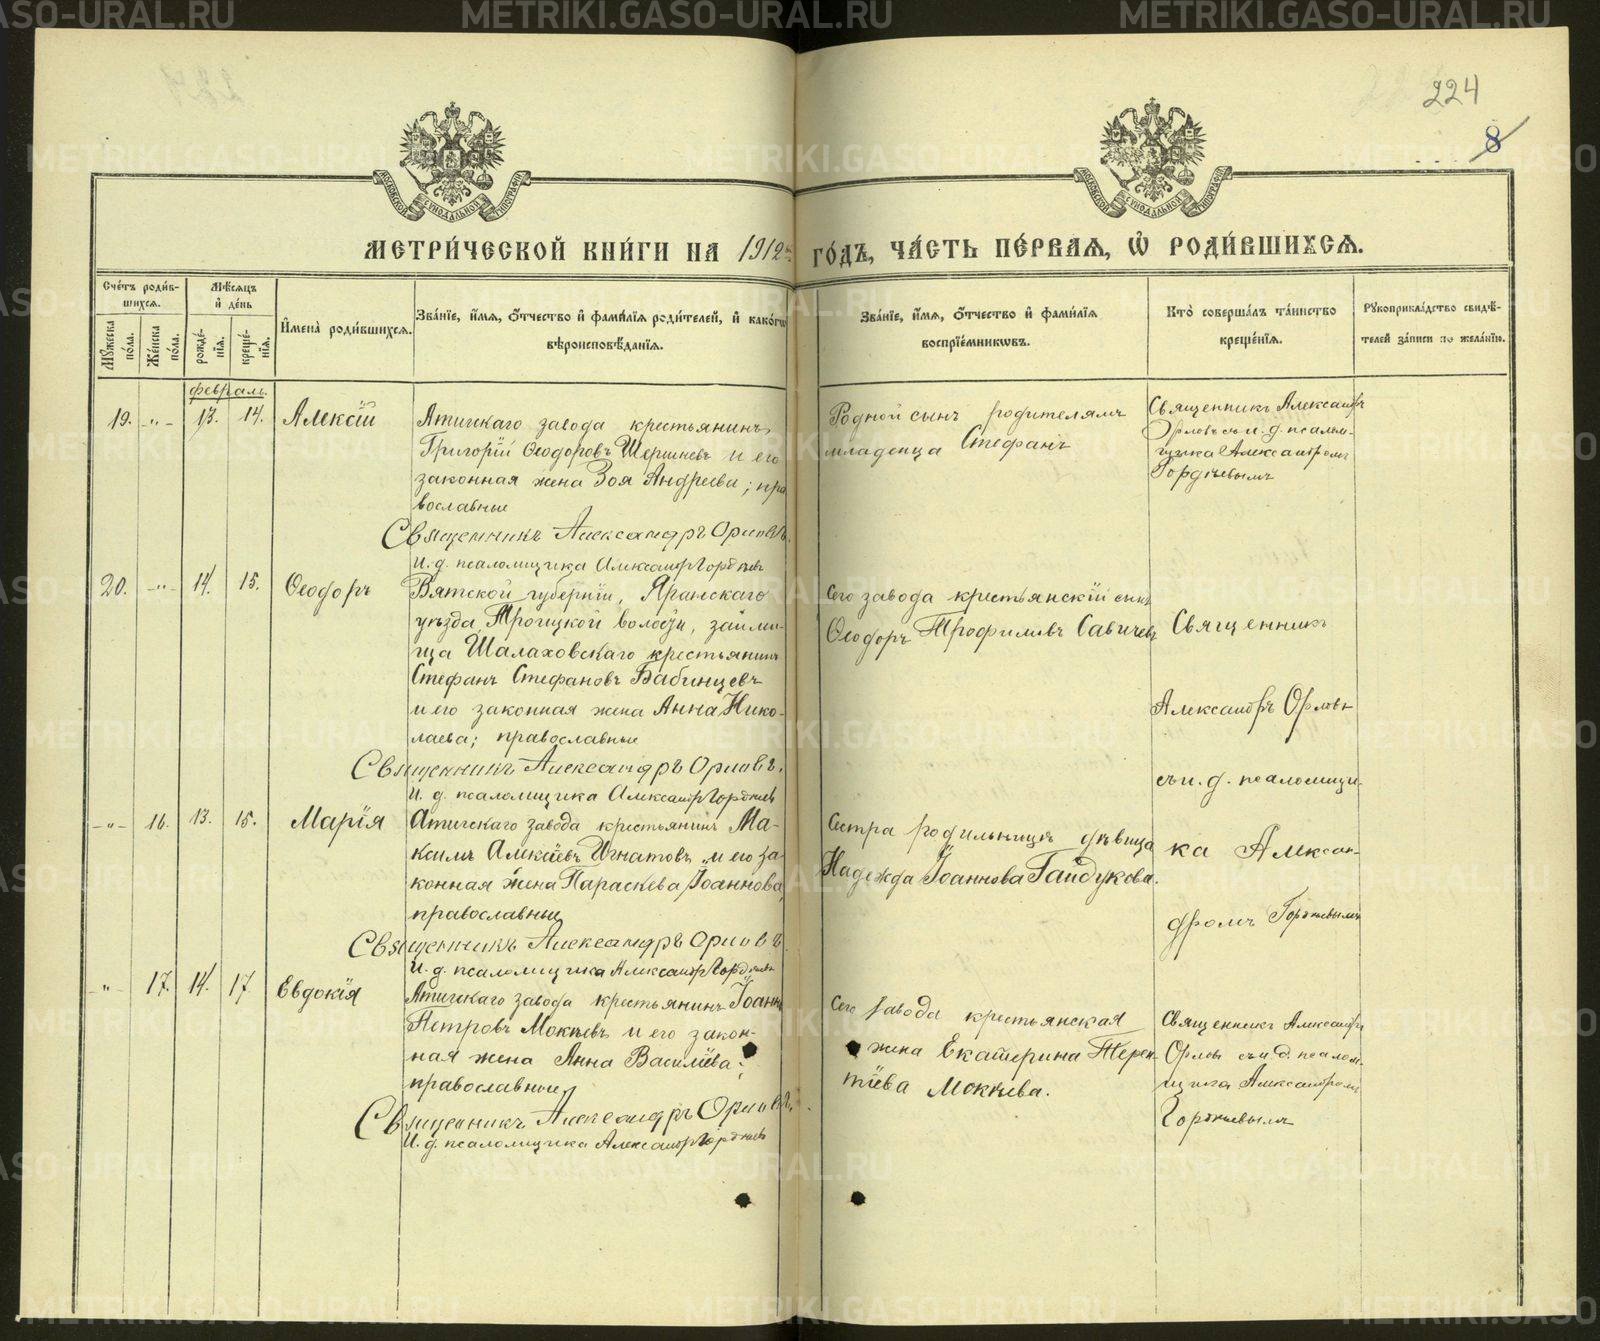 METRIKI.GASO-URAL.RU
224
8
МОСКОВСКОЙ СѴНОДАЛЬНОЙ ТИПОГРАФІИ
МОСКОВСКОЙ СѴНОДАЛЬНОЙ ТИПОГРАФІИ
МЕТРИ́ЧЕСКОЙ КНИ́ГИ НА 1912й ГО́ДЪ, ЧА́СТЬ ПЕ́РВАЯ, Ѡ҆ РОДИ́ВШИХСЯ.
Сче́тъ роди́в-
шихся.
Мужеска по́ла.
Же́нска по́ла.
Мѣ́сяцъ
и҆ де́нь
рожде́-
нїя.
креще́-
нїя.
И҆мена̀ роди́вшихся.
Зва́нїе, и҆́мя, ѻ҆́тчество и҆ фами́лїя роди́телей, и҆ како́гѡ
вѣроисповѣ́данїя.
Зва́нїе, и҆́мя, ѻ҆́тчество и҆ фами́лїя
воспрїе́мникѡвъ.
Кто̀ соверша́лъ та́инство
креще́нїя.
Рꙋкоприкла́дство свидѣ́-
телей за́писи по жела́нїю.
февраль.
19. -"- 13. 14. Алексій
Атигскаго завода крестьянинъ
Григорій Ѳеодоровъ Шершневъ и его
законная жена Зоя Андреева; пра
вославные
Священникъ Александръ Орловъ.
И. д. псаломщика Александръ Гордѣевъ
Родной сынъ родителямъ
младенца Стефанъ
Священникъ Александръ
Орловъ съ и. д. псалом-
щика Александромъ
Гордѣевымъ
20. -"- 14. 15. Ѳеодоръ
Вятской губерніи, Яранскаго
уѣзда Троицкой волости, займи-
ща Шалаховскаго крестьянинъ
Стефанъ Стефановъ Бабинцевъ
и его законная жена Анна Нико-
лаева; православные
Священникъ Александръ Орловъ.
И. д. псаломщика Александръ Гордѣевъ
Сего завода крестьянскій сынъ
Ѳеодоръ Трофимовъ Савичевъ
Священникъ
Александръ Орловъ
съ и. д. псаломщи-
ка Алексан-
дромъ Гордѣевымъ
-"- 16. 13. 15. Марія
Атигскаго завода крестьянинъ Ма-
ксимъ Алексіевъ Игнатовъ и его за
конная жена Параскева Іоаннова,
православные
Священникъ Александръ Орловъ
И. д. псаломщика Александръ Гордѣевъ
Сестра родильницы дѣвица
Надежда Іоаннова Гайдукова.
-"- 17. 14. 17 Евдокія
Атигскаго завода крестьянинъ Іоаннъ
Петровъ Мокѣевъ и его закон-
ная жена Анна Василіева;
православные
Священникъ Александръ Орловъ.
И. д. псаломщика Александръ Гордѣевъ
Сего завода крестьянская
жена Екатерина Терен-
тіева Мокѣева.
Священникъ Александръ
Орловъ съ и. д. псалом-
щика Александромъ
Гордѣевымъ